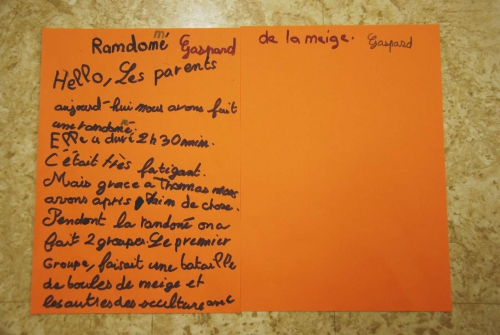 Ramdomé Gaspard
Hello, Les parents
aujourd-hui nous avons fait
une randomé.
Elle a duré 2h30min.
C'était très fatigant.
Mais grace à Thomas nous
avons apris plain de chose.
Pendent la randoné on a
fait 2 groupes. Le premier
Groupe, faisait une bataille
de boules de meige et
les autres des sculture avec
de la meige. Gaspard